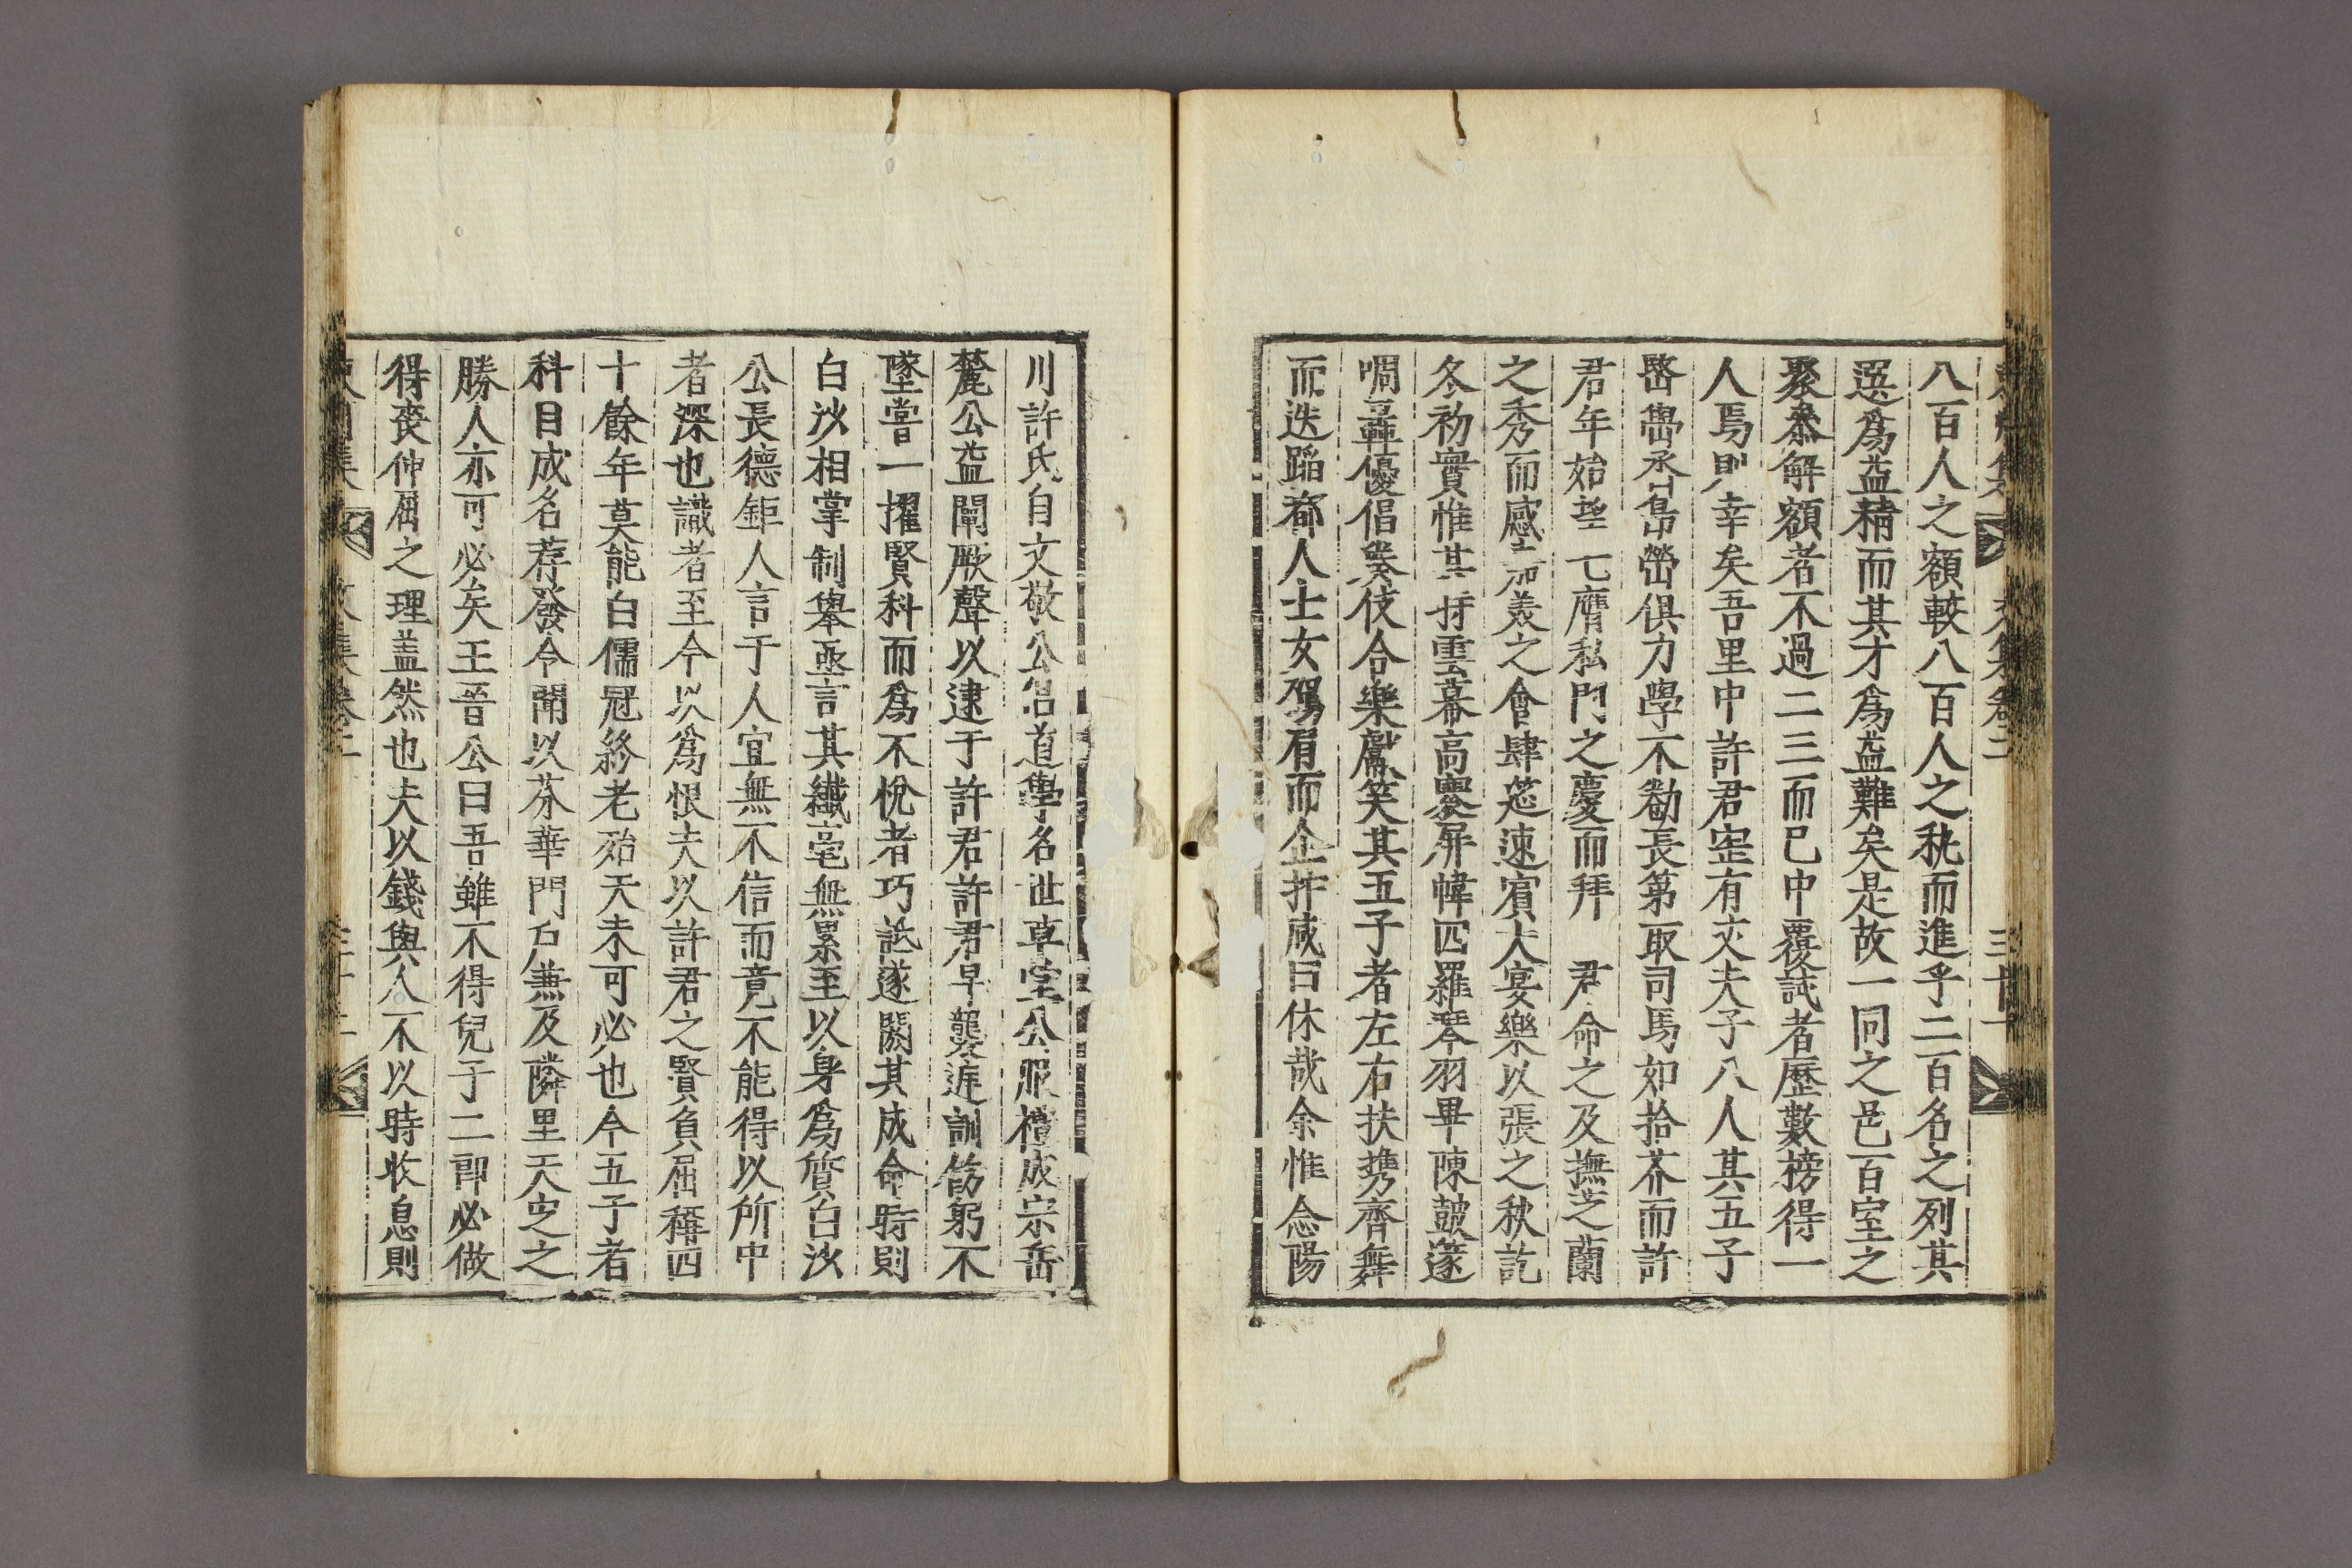 八百人之額較八百人之秇而進乎二百名之列其
選爲益精而其才爲益難矣是故一同之邑百室之
聚忝解額者不過二三而已中覆試者歷數榜得一
人焉則幸矣吾里中許君寔有丈夫子八人其五子
俱力學不勌長第取司馬如拾芥而許
君年始七膺私門之慶而拜 君命之及撫芝蘭
之秀而感嘉美之會肆筵速賓大宴樂以張之秋訖
冬初實惟其時雲幕高褰屛幃四羅琴羽畢陳鼓篴
啁轟優倡奏伎合樂獻笑其五子者左右扶携齊舞
而迭蹈都人士女駕肩而企抃咸曰休哉余惟念陽
川許氏自文敬公岦道學名世草堂公服禮成宗岳
麓公益闡厥聲以逮于許君許君早襲庭訓飭躬不
墜嘗一擢賢科而爲不悅者巧詆遂閼其成命時則
白沙相掌制擧亟言其纖毫無累至以身爲質白沙
公長德鉅人言于人宜無不信而竟不能得以所中
者深也識者至今以爲恨夫以許君之賢負屈稱四
十餘年莫能白儒冠終老殆天未可必也今五子者
科目成名荐發令聞以芬華門戶兼及隣里天定之
勝人亦可必矣王晉公曰吾雖不得兒子二郞必做
得喪伸屈之理盖然也夫以錢與人不以時收息則